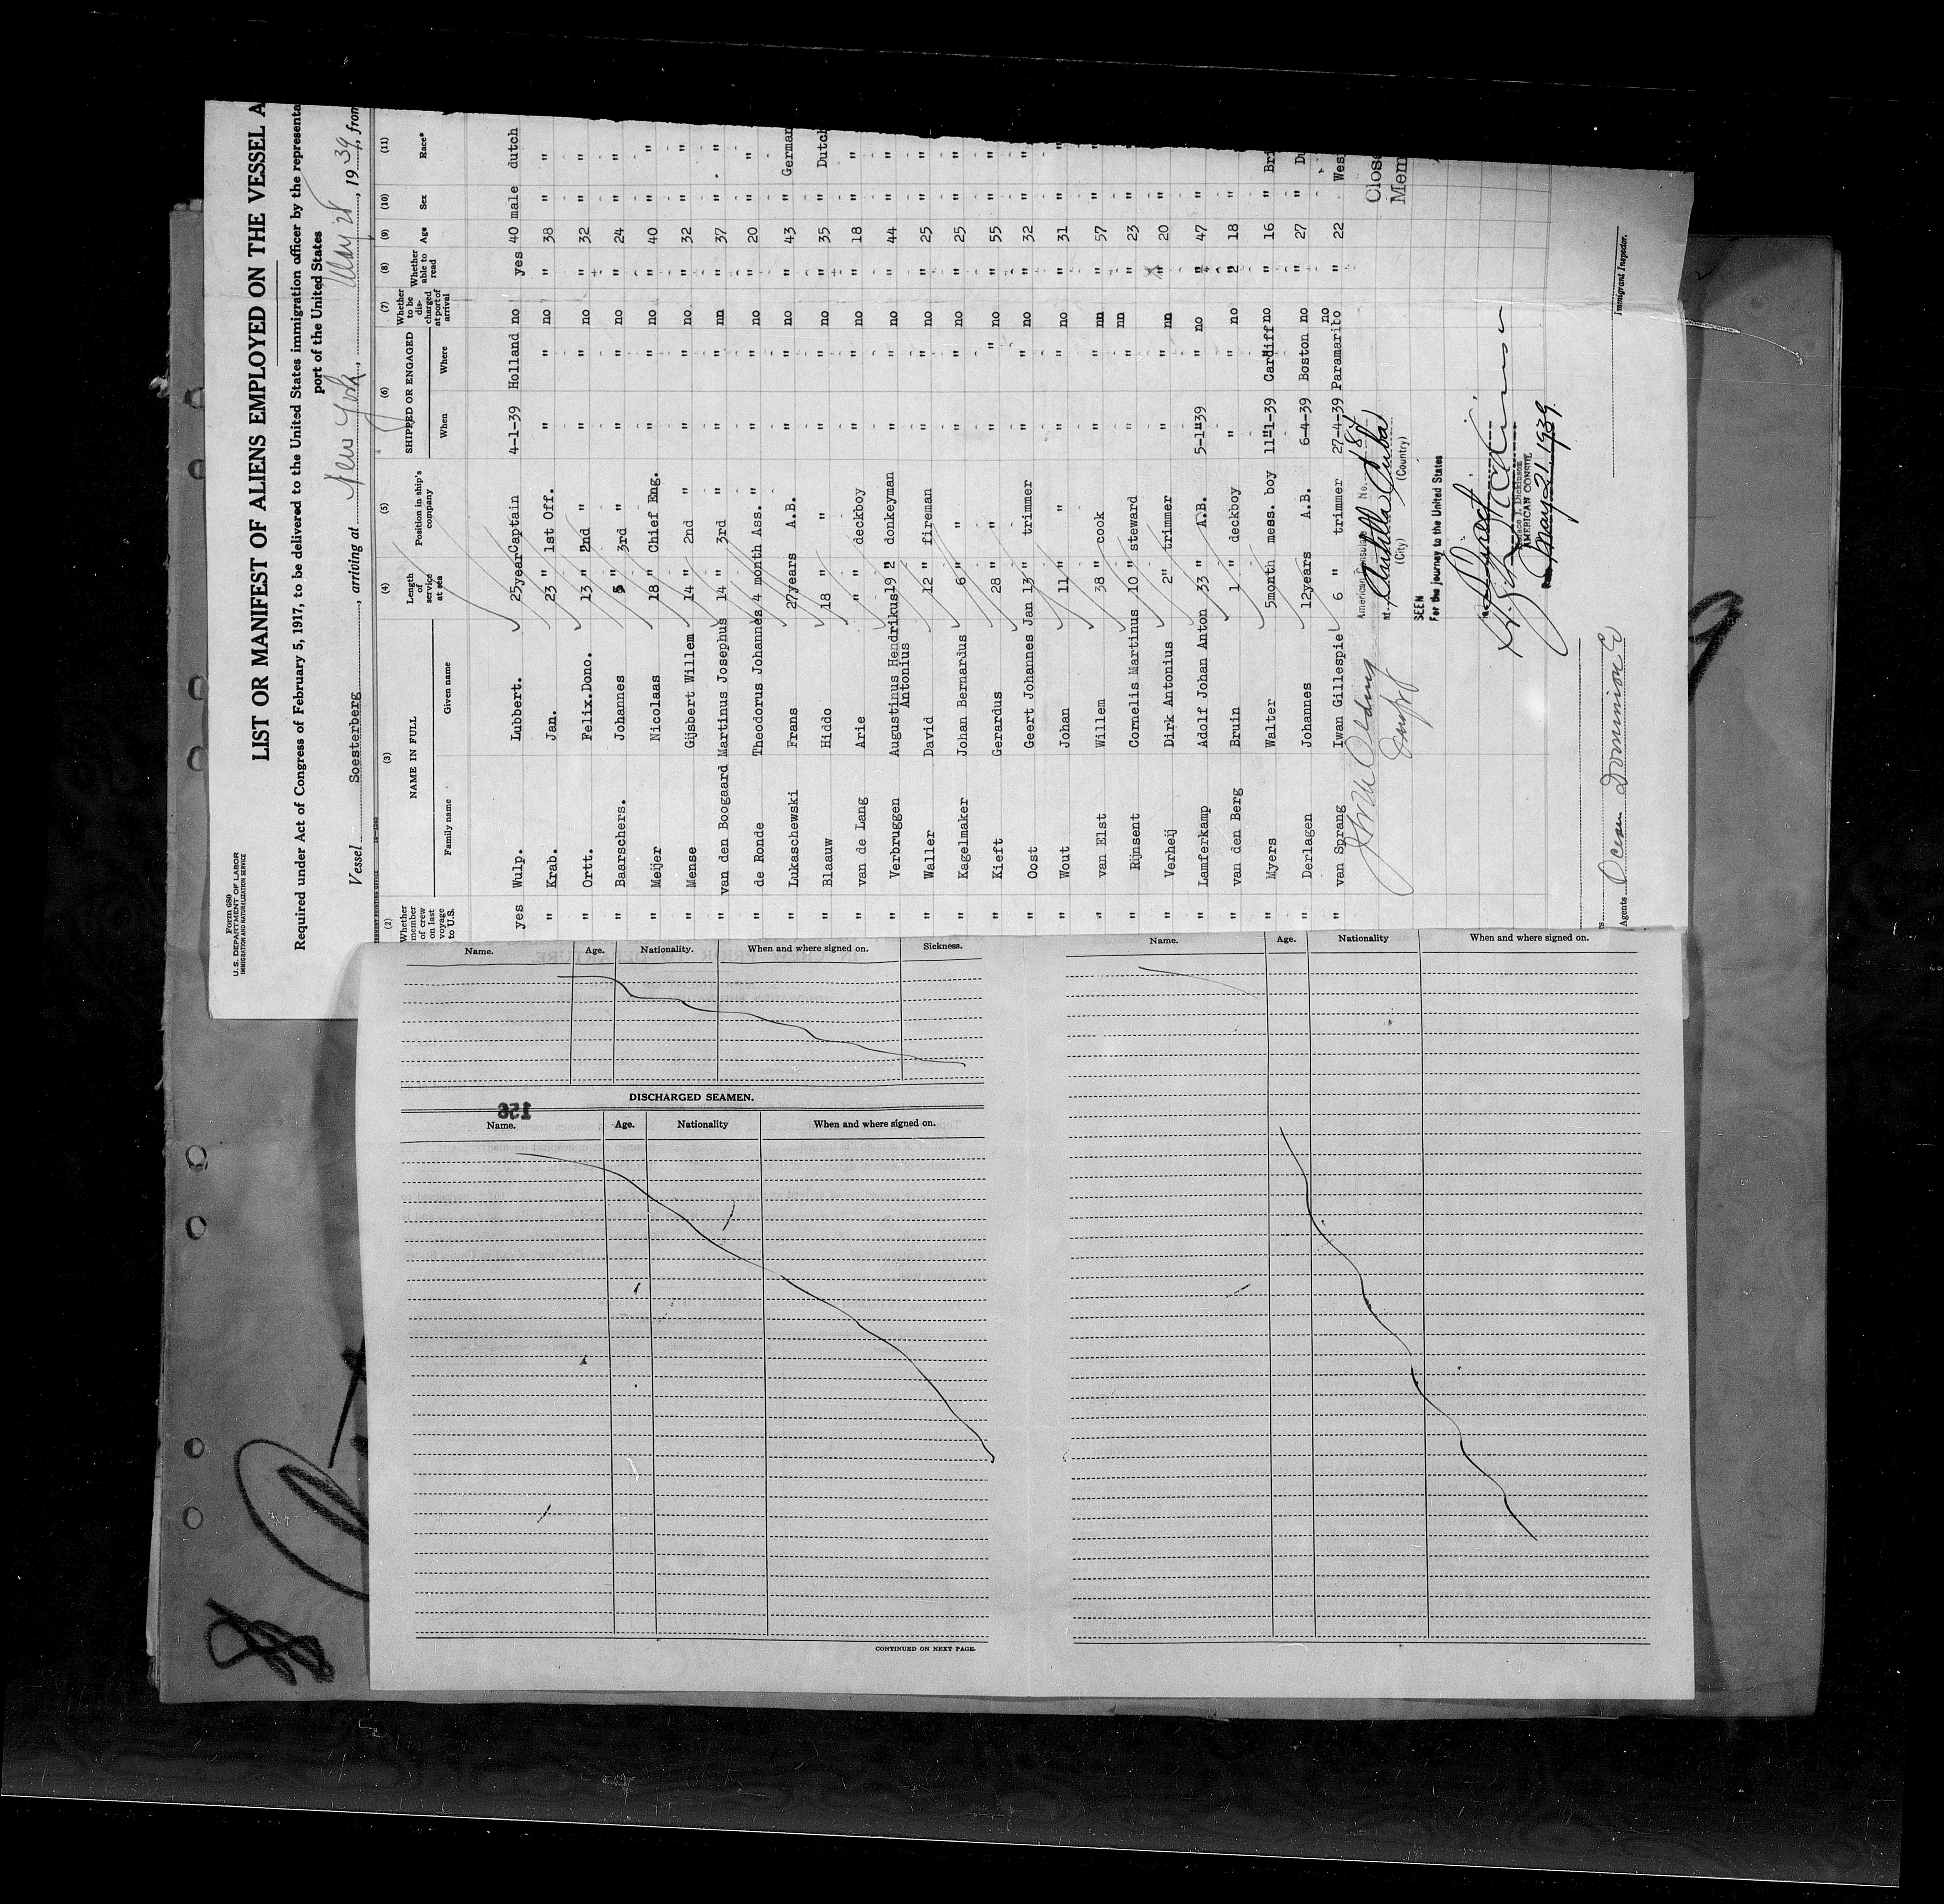 Form 680
U. S. DEPARTMENT OF LABOR
IMMIGRATION AND NATURALIZATION SERVICE
LIST OR MANIFEST OF ALIENS EMPLOYED ON THE VESSEL A
Required under Act of Congress of February 5, 1917, to be delivered to the United States immigration officer by the representa
port of the United States
Vessel Soesterberg, arriving at New York, May 28, 1939, from
(2) (3) (4) (5) (6) (7) (8) (9) (10) (11)
Whether member of crew on last voyage to U.S. NAME IN FULL Family name Given name Length of service at sea Position in ship's company SHIPPED OR ENGAGED When Where Whether to be discharged at port of arrival Whether able to read Age Sex Race*
yes Wulp. Lubbert. 25year Captain 4-1-39 Holland no yes 40 male dutch
" Krab. Jan. 23 " 1st Off. " " no " 38 " "
" Ortt. Felix.Dono. 13 " 2nd " " " no " 32 " "
" Baarschers. Johannes 5 " 3rd " " " no " 24 " "
" Meijer Nicolaas 18 " Chief Eng. " " no " 40 " "
" Mense Gijsbert Willem 14 " 2nd " " " no " 32 " "
" van den Boogaard Martinus Josephus 14 " 3rd " " " no " 37 " "
" de Ronde Theodorus Johannes 4 month Ass. " " " no " 20 " "
" Lukaschewski Frans 27years A.B. " " no " 43 " German
" Blaauw Hiddo 18 " " " " no " 35 " Dutch
" van de Lang Arie " " deckboy " " no " 18 " "
" Verbruggen Augustinus Hendrikus Antonius 19 " donkeyman " " no " 44 " "
" Waller David 12 " fireman " " no " 25 " "
" Kagelmaker Johan Bernardus 6 " " " " no " 25 " "
" Kieft Gerardus 28 " " " " no " 55 " "
" Oost Geert Johannes Jan 13 " trimmer " " no " 32 " "
" Wout Johan 11 " " " " no " 31 " "
" van Elst Willem 38 " cook " " no " 57 " "
" Rijnsent Cornelis Martinus 10 " steward " " no " 23 " "
" Verheij Dirk Antonius 2 " trimmer " " no " 20 " "
" Lamferkamp Adolf Johan Anton 33 " A.B. 5-1-39 " no " 47 " "
" van den Berg Bruin 1 " deckboy " " no " 18 " "
" Myers Walter 5month mess. boy 11-1-39 Cardiff no " 16 " Bri
" Derlagen Johannes 12years A.B. 6-4-39 Boston no " 27 " Du
" van Sprang Iwan Gillespie 6 " trimmer 27-4-39 Paramaribo no " 22 Wes
American Consular No. 184
at Antilla Cuba
(City) (Country)
SEEN
For the journey to the United States
Direct
AMERICAN CONSUL
May 21, 1939.
Close
Mem
Agents Ocean Dominion
Immigrant Inspector.
Name. Age. Nationality. When and where signed on. Sickness.
DISCHARGED SEAMEN.
156
Name. Age. Nationality When and where signed on.
CONTINUED ON NEXT PAGE.
Name. Age. Nationality When and where signed on.